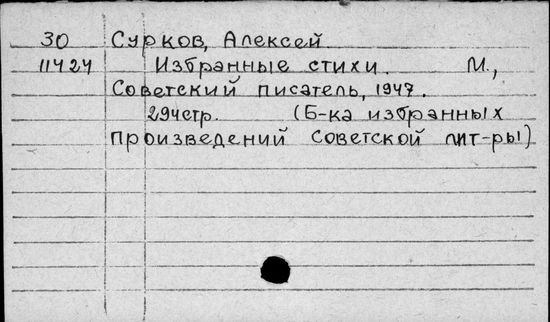 30 Сурков, Алексей
11424 Избранные стихи. М.,
Советский писатель, 1947.
294стр. (Б-ка избранных
произведений советской лит-ры)